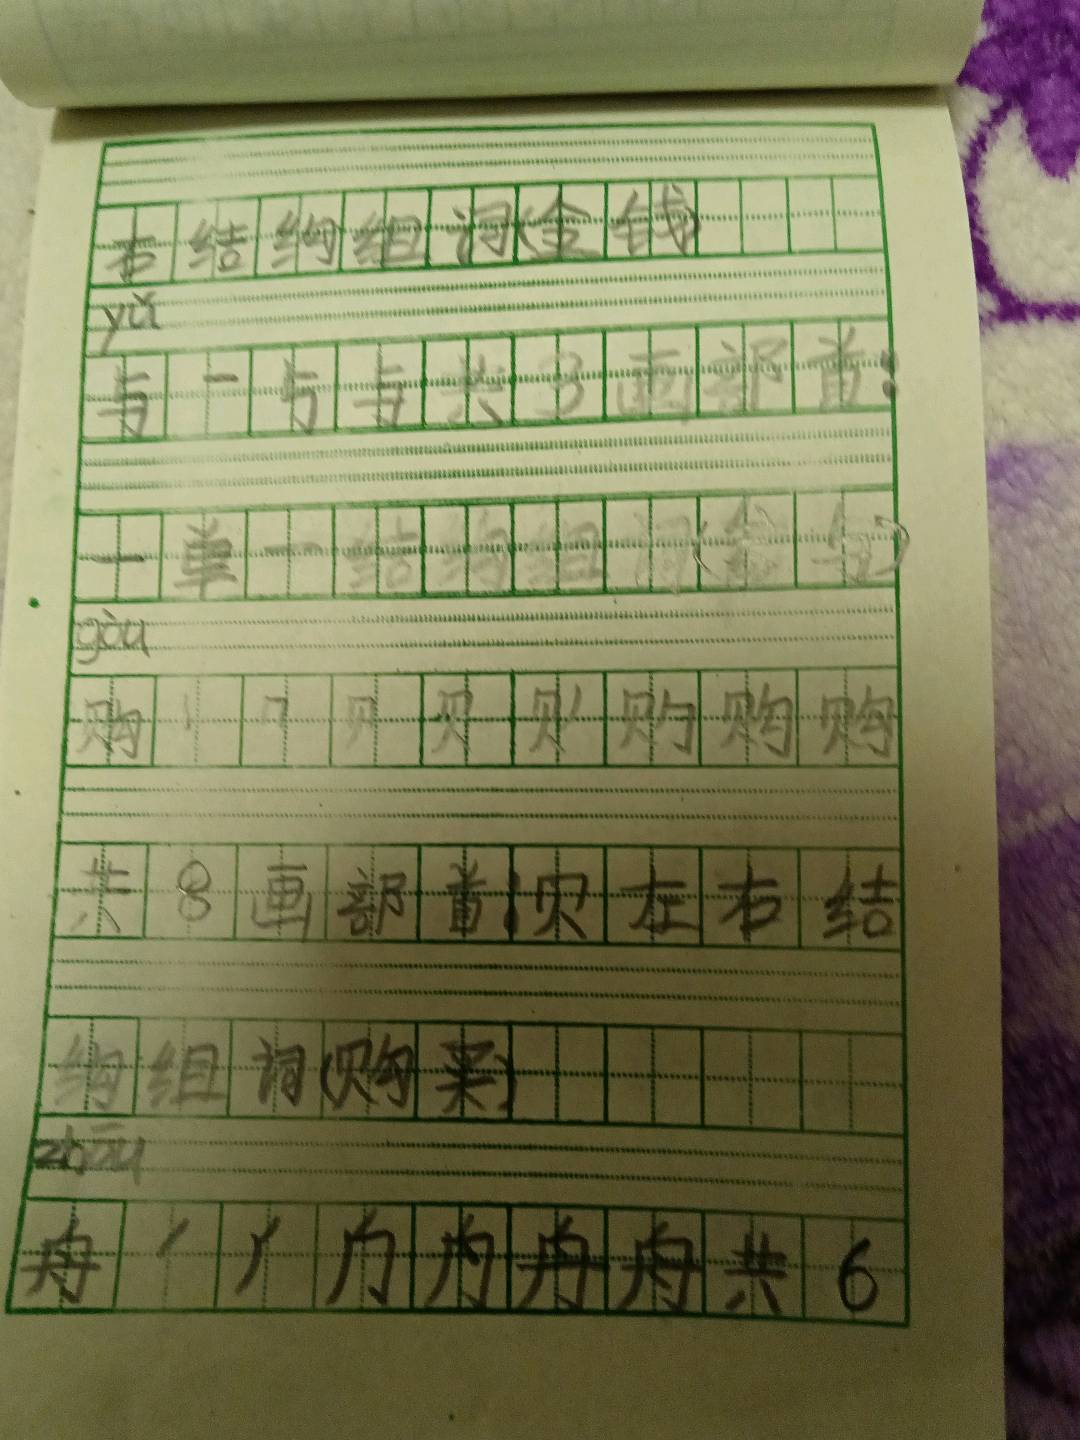 右结构组词(金钱)
yǔ
与一与与共3画部首:
一单一结构组词(金与)
gòu
购丨冂贝贝购购购购
共8画部首:贝左右结
构组词(购买)
zhōu
舟丿丿冂舟舟舟共6